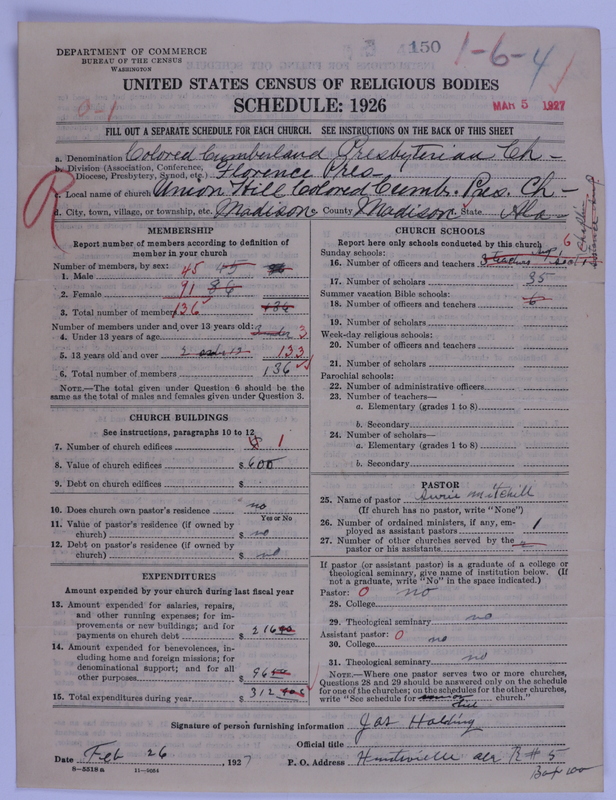 4150
1-6-4
DEPARTMENT OF COMMERCE
BUREAU OF THE CENSUS
WASHINGTON
UNITED STATES CENSUS OF RELIGIOUS BODIES
SCHEDULE: 1926
0-1
MAR 5 1927
FILL OUT A SEPARATE SCHEDULE FOR EACH CHURCH. SEE INSTRUCTIONS ON THE BACK OF THIS SHEET
a. Denomination Colored Cumberland Presbyterian Ch -
b. Division (Association, Conference, Diocese, Presbytery, Synod, etc.) Florence Pres.
c. Local name of church Union Hill Colored Cumb. Pres. Ch -
d. City, town, village, or township, etc. Madison County Madison State Ala -
R
MEMBERSHIP
Report number of members according to definition of
member in your church
Number of members, by sex:
1. Male 45
2. Female 91
3. Total number of members 136
Number of members under and over 13 years old:
4. Under 13 years of age 3
5. 13 years old and over 133
6. Total number of members 136
NOTE.—The total given under Question 6 should be
same as the total of males and females given under Question 3.
CHURCH BUILDINGS
See instructions, paragraphs 10 to 12
7. Number of church edifices 1
8. Value of church edifices $ 600
9. Debt on church edifices $
10. Does church own pastor's residence no
Yes or No
11. Value of pastor's residence (if owned by
church) $ no
12. Debt on pastor's residence (if owned by
church) $ no
EXPENDITURES
Amount expended by your church during last fiscal year
13. Amount expended for salaries, repairs,
and other running expenses; for im-
provements or new buildings; and for
payments on church debt $ 216
14. Amount expended for benevolences, in-
cluding home and foreign missions; for
denominational support; and for all
other purposes $ 96
15. Total expenditures during year $ 312
CHURCH SCHOOLS
Report here only schools conducted by this church
Sunday schools: 6
16. Number of officers and teachers
17. Number of scholars 35
Summer vacation Bible schools:
18. Number of officers and teachers
19. Number of scholars
Week-day religious schools:
20. Number of officers and teachers
21. Number of scholars
Parochial schools:
22. Number of administrative officers
23. Number of teachers—
a. Elementary (grades 1 to 8)
b. Secondary
24. Number of scholars—
a. Elementary (grades 1 to 8)
b. Secondary
PASTOR
25. Name of pastor Mitchell
(If church has no pastor, write "None")
26. Number of ordained ministers, if any, em-
ployed as assistant pastors 1
27. Number of other churches served by the
pastor or his assistants
If pastor (or assistant pastor) is a graduate of a college or
theological seminary, give name of institution below. (If
not a graduate, write "No" in the space indicated.)
Pastor: 0 no
28. College
29. Theological seminary no
Assistant pastor: 0
30. College no
31. Theological seminary no
NOTE.—Where one pastor serves two or more churches,
Questions 28 and 29 should be answered only on the schedule
for one of the churches; on the schedules for the other churches,
write "See schedule for church."
Signature of person furnishing information Jas Holding
Official title
Date Feb 26, 1927 P. O. Address Huntsville ala R#5
8-5518a 11-9064 Box 100